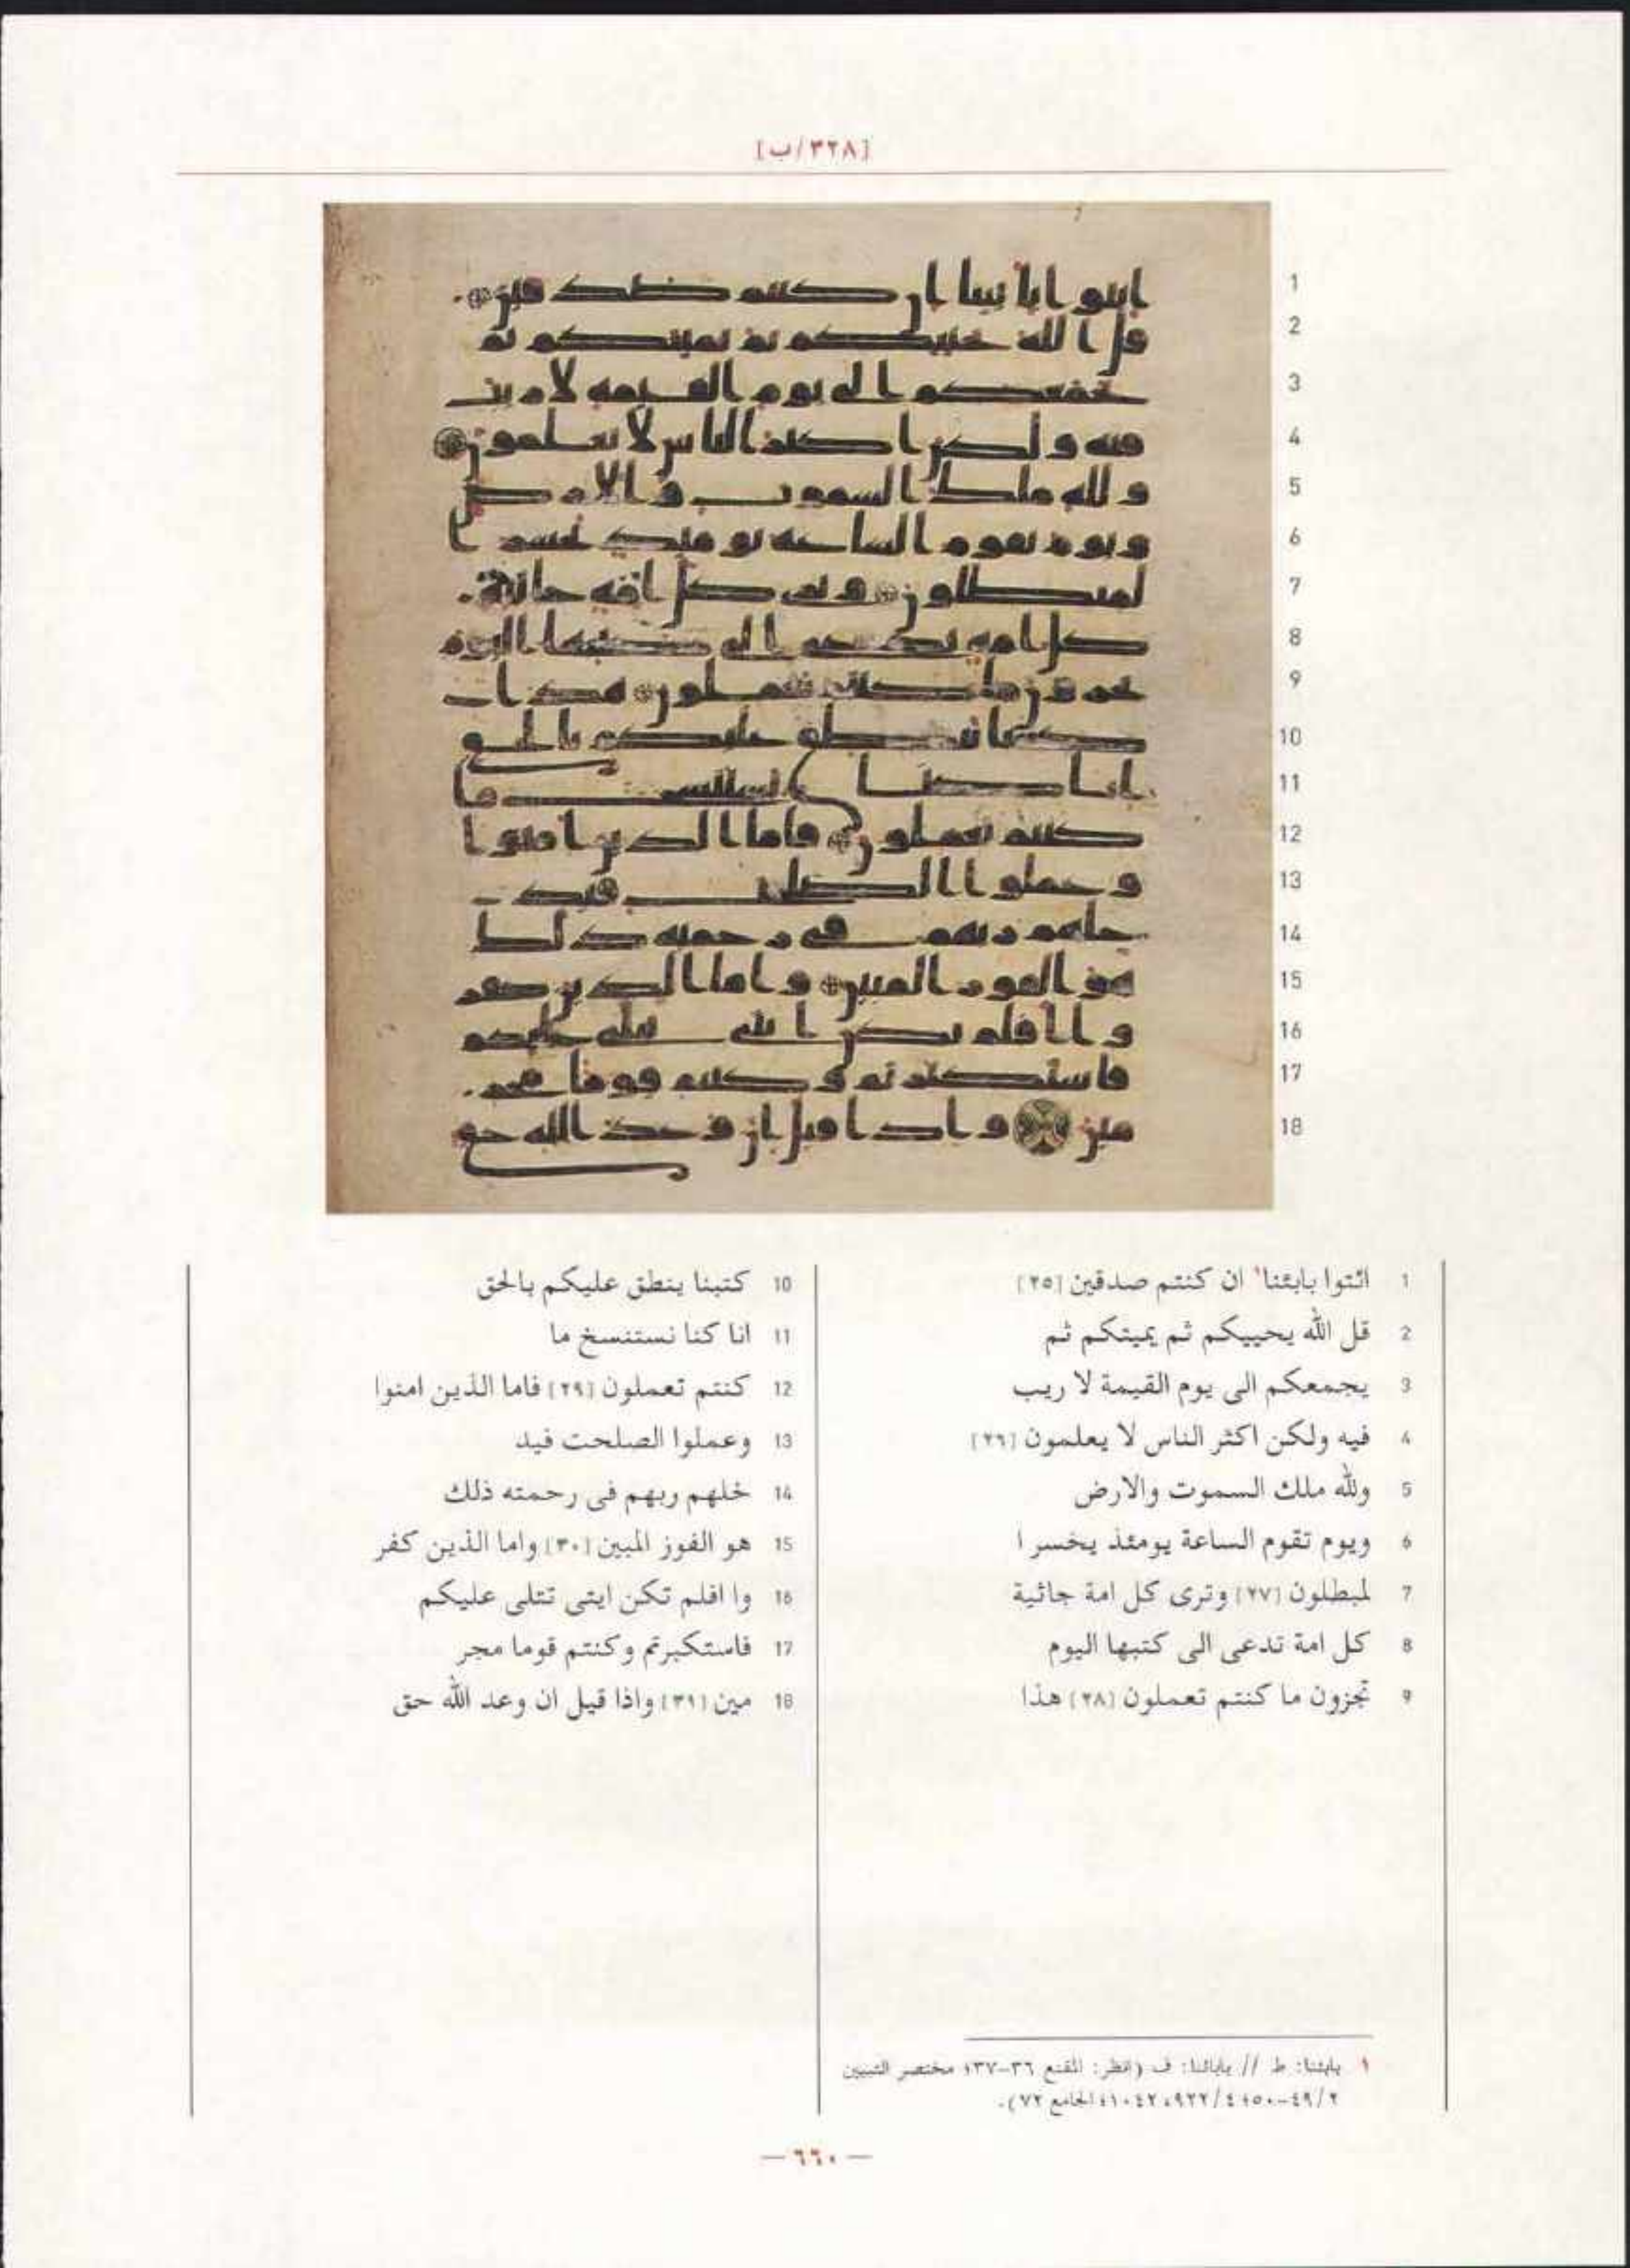 [٣٢٨/ب]
1
2
3
4
5
6
7
8
9
10
11
12
13
14
15
16
17
18
1 ائتوا بابئنا١ ان كنتم صدقين [٢٥]
2 قل الله يحييكم ثم يميتكم ثم
3 يجمعكم الى يوم القيمة لا ريب
4 فيه ولكن اكثر الناس لا يعلمون [٢٦]
5 ولله ملك السموت والارض
6 ويوم تقوم الساعة يومئذ يخسر ا
7 لمبطلون [٢٧] وترى كل امة جاثية
8 كل امة تدعى الى كتبها اليوم
9 تجزون ما كنتم تعملون [٢٨] هذا
10 كتبنا ينطق عليكم بالحق
11 انا كنا نستنسخ ما
12 كنتم تعملون [٢٩] فاما الذين امنوا
13 وعملوا الصلحت فيد
14 خلهم ربهم فى رحمته ذلك
15 هو الفوز المبين [٣٠] واما الذين كفر
16 وا افلم تكن ايتى تتلى عليكم
17 فاستكبرتم وكنتم قوما مجر
18 مين [٣١] واذا قيل ان وعد الله حق
١ بابئنا: ط // بابائنا: ف (انظر: المقنع ٣٦-٣٧؛ مختصر التبيين
٤٩/٢-٥٠؛ ٤/٩٢٢، ١٠٤٢؛ الجامع ٧٢).
— ٦٦٠ —